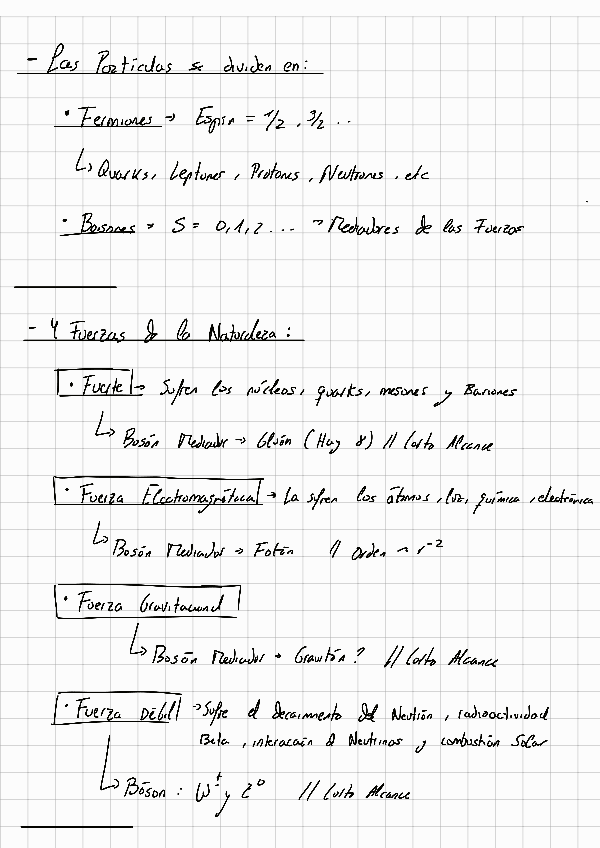 - Las Partículas se dividen en:
• Fermiones → Espín = 1/2, 3/2 ..
↳ Quarks, Leptones, Protones, Neutrones, etc
• Bosones → S = 0,1,2... → Mediadores de las Fuerzas
- 4 Fuerzas de la Naturaleza:
• Fuerte → Sufren los núcleos, quarks, mesones y Bariones
↳ Bosón Mediador → Gluón (Hay 8) // Corto Alcance
• Fuerza Electromagnética → La sufren los átomos, luz, química, electrónica
↳ Bosón Mediador → Fotón // Orden ~ r⁻²
• Fuerza Gravitacional
↳ Bosón Mediador → Gravitón? // Corto Alcance
• Fuerza Débil → Sufre el decaimiento del Neutrón, radioactividad
Beta, interacción d Neutrinos y combustión Solar
↳ Bóson: W± y Z⁰ // Corto Alcance